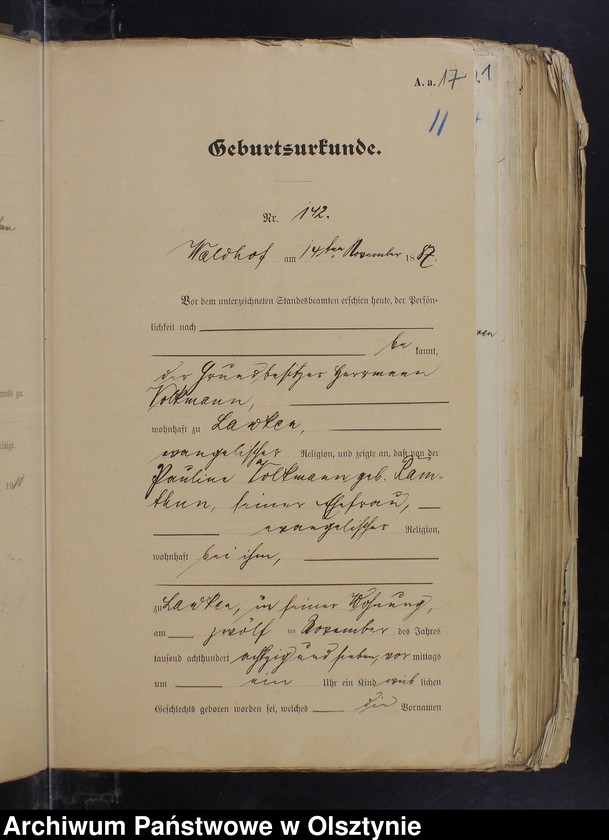 A. a. 17
11
Geburtsurkunde.
Nr. 142.
Waldhof am 14ten November 1887.
Vor dem unterzeichneten Standesbeamten erschien heute, der Persön-
lichkeit nach
be kannt,
der Grundbesitzer Herrmann
Volkmann,
wohnhaft zu Lawken,
evangelischer Religion, und zeigte an, daß von der
Pauline Volkmann geb. Ram-
thun, seiner Ehefrau,
evangelischer Religion,
wohnhaft bei ihm,
zu Lawken, in seiner Wohnung,
am zwölf ten November des Jahres
tausend achthundert achtzig und sieben, vor mittags
um ein Uhr ein Kind weib lichen
Geschlechts geboren worden sei, welches die Vornamen
Archiwum Państwowe w Olsztynie